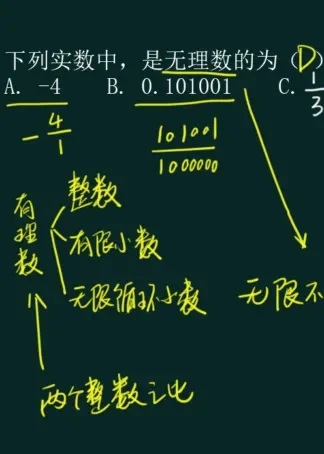 下列实数中，是无理数的为（D）
A. -4 B. 0.101001 C. 1/3
-4/1 101001/1000000
有理数
整数
有限小数
无限循环小数 无限不
两个整数之比